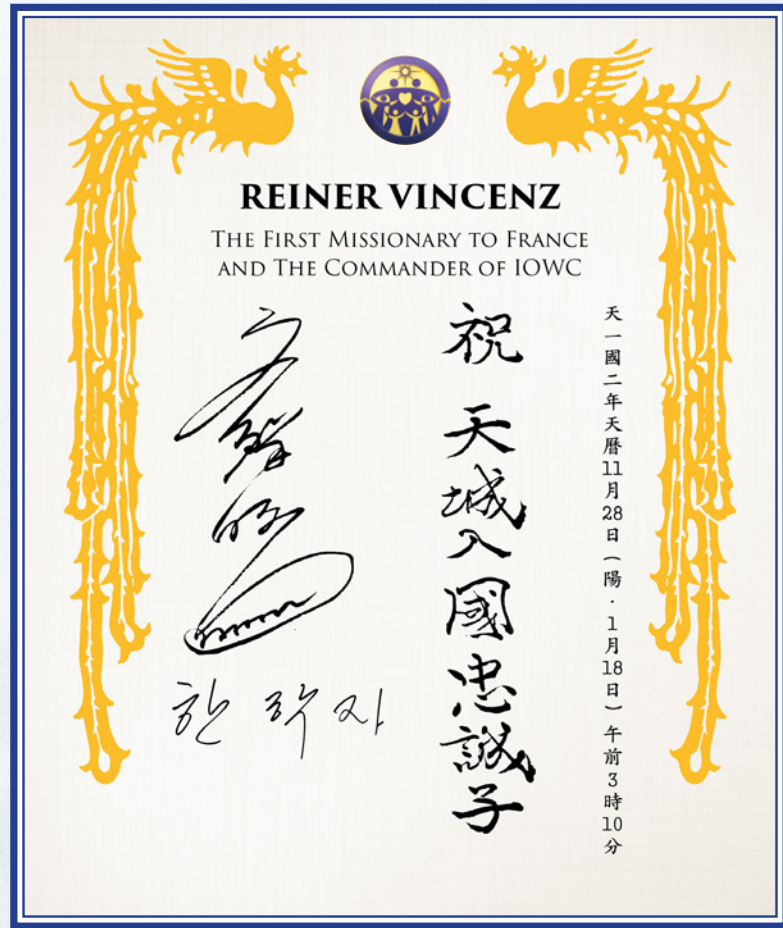 REINER VINCENZ
THE FIRST MISSIONARY TO FRANCE
AND THE COMMANDER OF IOWC
天一國二年天曆11月28日（陽·1月18日）午前3時10分
祝 天城入國忠誠子
文鮮明
한 학자